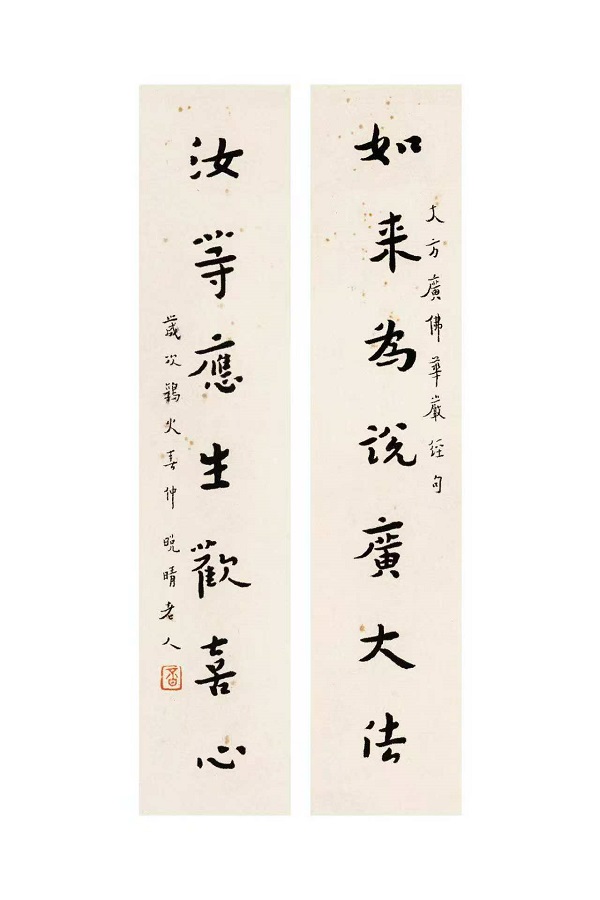 大方廣佛華嚴經句
如来為說廣大法
汝等應生歡喜心
歲次鶉火春仲晚晴老人